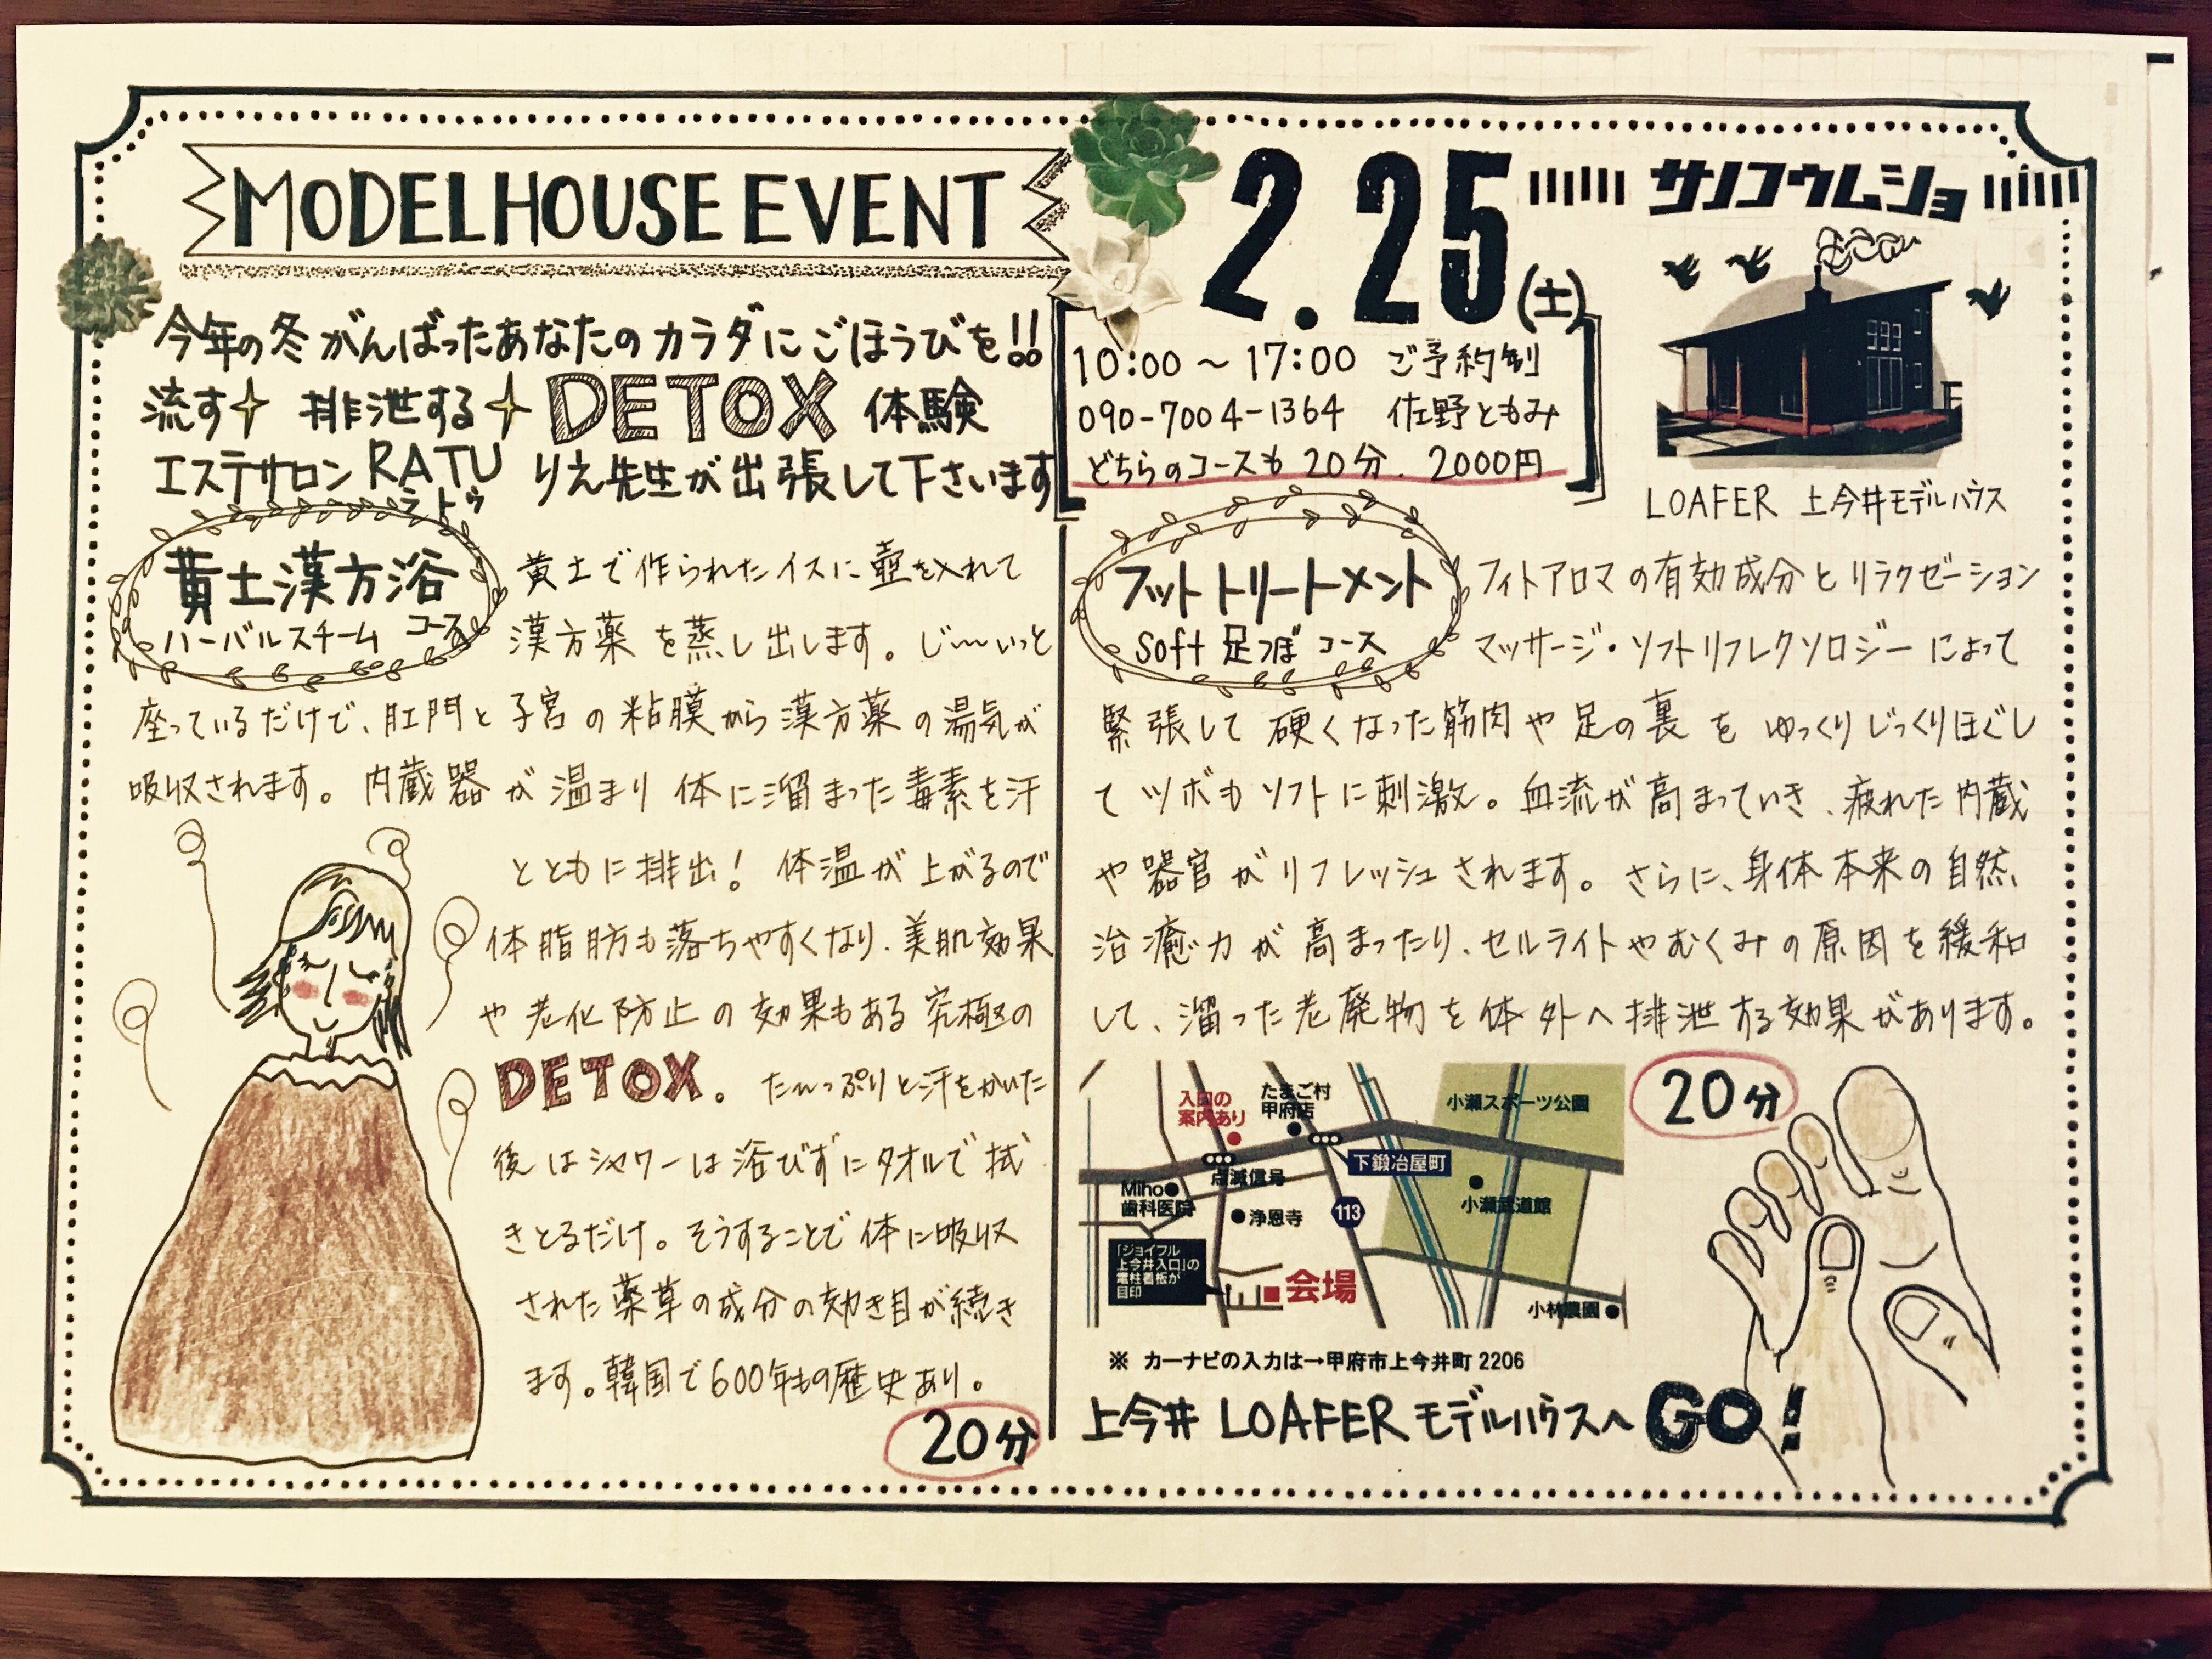 MODELHOUSE EVENT
2.25(土)
サノコウムショ
今年の冬がんばったあなたのカラダにごほうびを!!
流す 排泄する DETOX 体験
エステサロン RATU りえ先生が出張して下さいます
ラトゥ
10:00〜17:00 ご予約制
090-7004-1364 佐野ともみ
どちらのコースも 20分. 2000円
LOAFER 上今井モデルハウス
黄土漢方浴
ハーバルスチーム コース
黄土で作られたイスに壺を入れて
漢方薬を蒸し出します。じ〜いっと
座っているだけで、肛門と子宮の粘膜から漢方薬の湯気が
吸収されます。内蔵器が温まり体に溜まった毒素を汗
とともに排出! 体温が上がるので
体脂肪も落ちやすくなり、美肌効果
や老化防止の効果もある究極の
DETOX。た〜っぷりと汗をかいた
後はシャワーは浴びずにタオルで拭
きとるだけ。そうすることで体に吸収
された薬草の成分の効き目が続き
ます。韓国で600年もの歴史あり。
20分
フットトリートメント
Soft 足つぼ コース
フィトアロマの有効成分とリラクゼーション
マッサージ・ソフトリフレクソロジーによって
緊張して硬くなった筋肉や足の裏をゆっくりじっくりほぐし
てツボもソフトに刺激。血流が高まっていき、疲れた内蔵
や器官がリフレッシュされます。さらに、身体本来の自然
治癒力が高まったり、セルライトやむくみの原因を緩和
して、溜った老廃物を体外へ排泄する効果があります。
20分
入口の
案内あり
たまご村
甲府店
小瀬スポーツ公園
下鍛冶屋町
点滅信号
Miho
歯科医院
浄恩寺
113
小瀬武道館
「ジョイフル
上今井入口」の
電柱看板が
目印
会場
小林農園
※ カーナビの入力は→甲府市上今井町 2206
上今井 LOAFER モデルハウスへ GO!